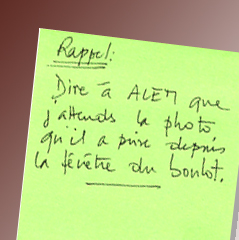 Rappel:
Dire à ALEM que
j'attends la photo
qu'il a prise depuis
la fenêtre du boulot.